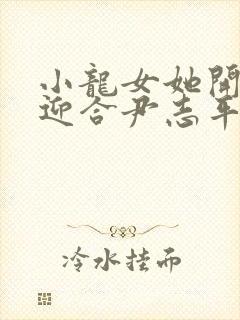 小龍女她開
迎合尹志平
冷水挂面